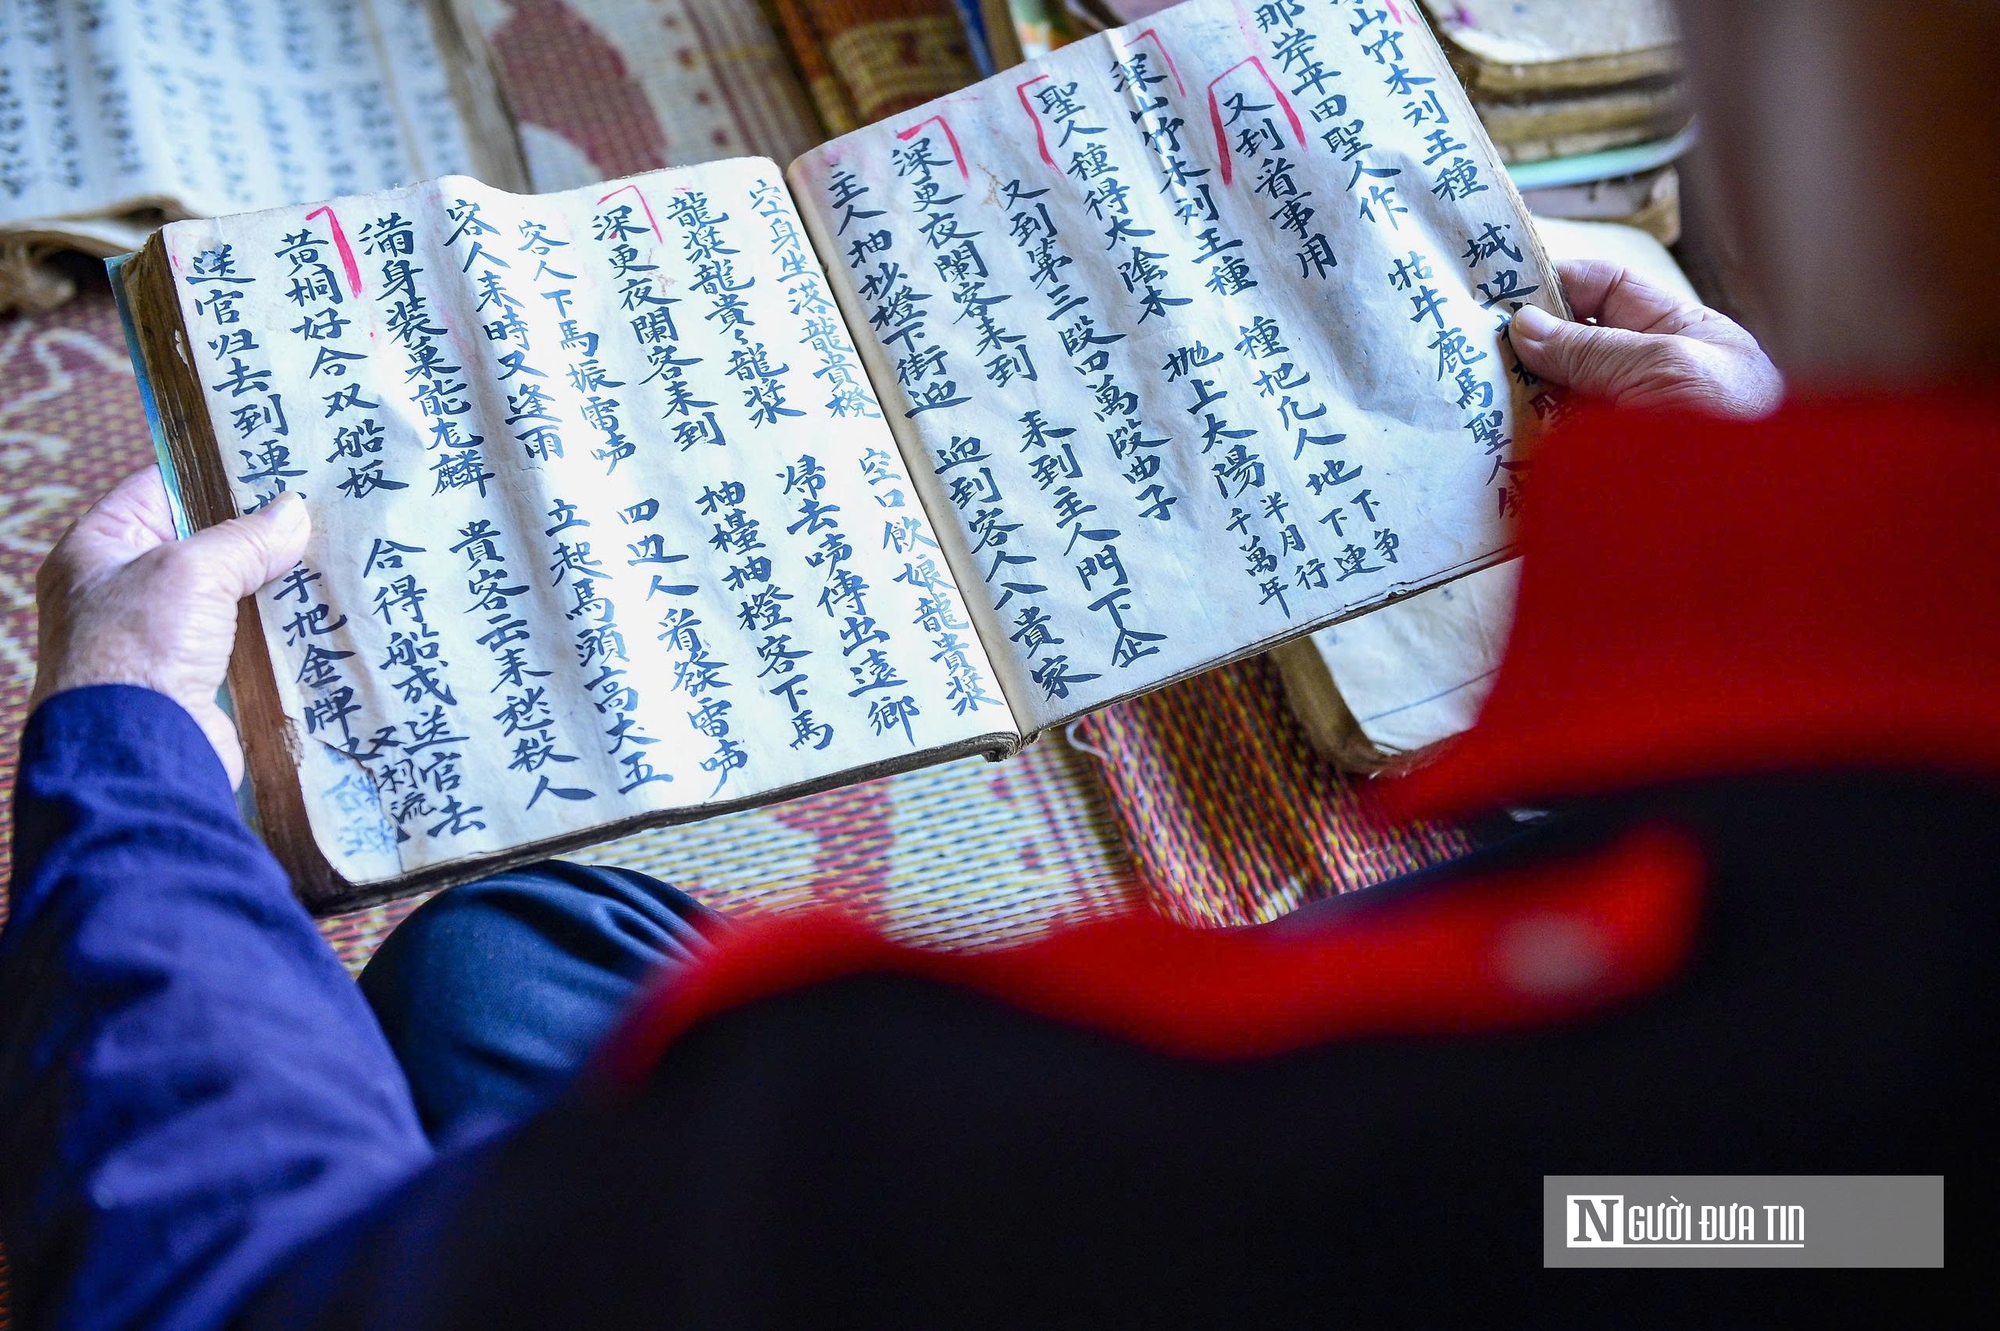 山竹木刘王種 城边
那岸平田聖人作 牯牛鹿馬聖人
又到看事用
深山竹木刘王種 種把凢人地下争
下連
聖人種得太陰木 抛上太陽半月行
千萬年
又到第三段口萬段曲子
深更夜闌客来到 来到主人門下企
主人抽抄橙下街迎 迎到客人八貴家
空身坐落龍貴橙 空口飲娘龍貴漿
龍漿龍貴々龍漿 帰去唠傳出遠鄉
深更夜闌客来到 抽檯抽橙客下馬
客人下馬振雷唠 四边人看發雷唠
客人来時又逢雨 立起馬頭高丈五
满身装裹能尨麟 貴客云来愁殺人
黄桐好合双船板 合得船成送官去
送官归去到連 手把金牌又
NGƯỜI ĐƯA TIN